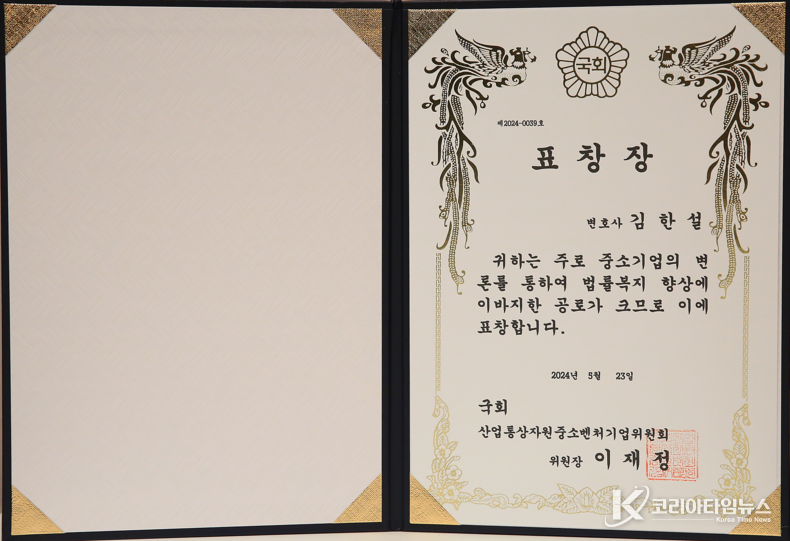 국회
제2024-0039호
표 창 장
변호사 김 한 설
귀하는 주로 중소기업의 변
론를 통하여 법률복지 향상에
이바지한 공로가 크므로 이에
표창합니다.
2024년 5월 23일
국회
산업통상자원중소벤처기업위원회
위원장 이 재 정
코리아타임뉴스
Korea Time News